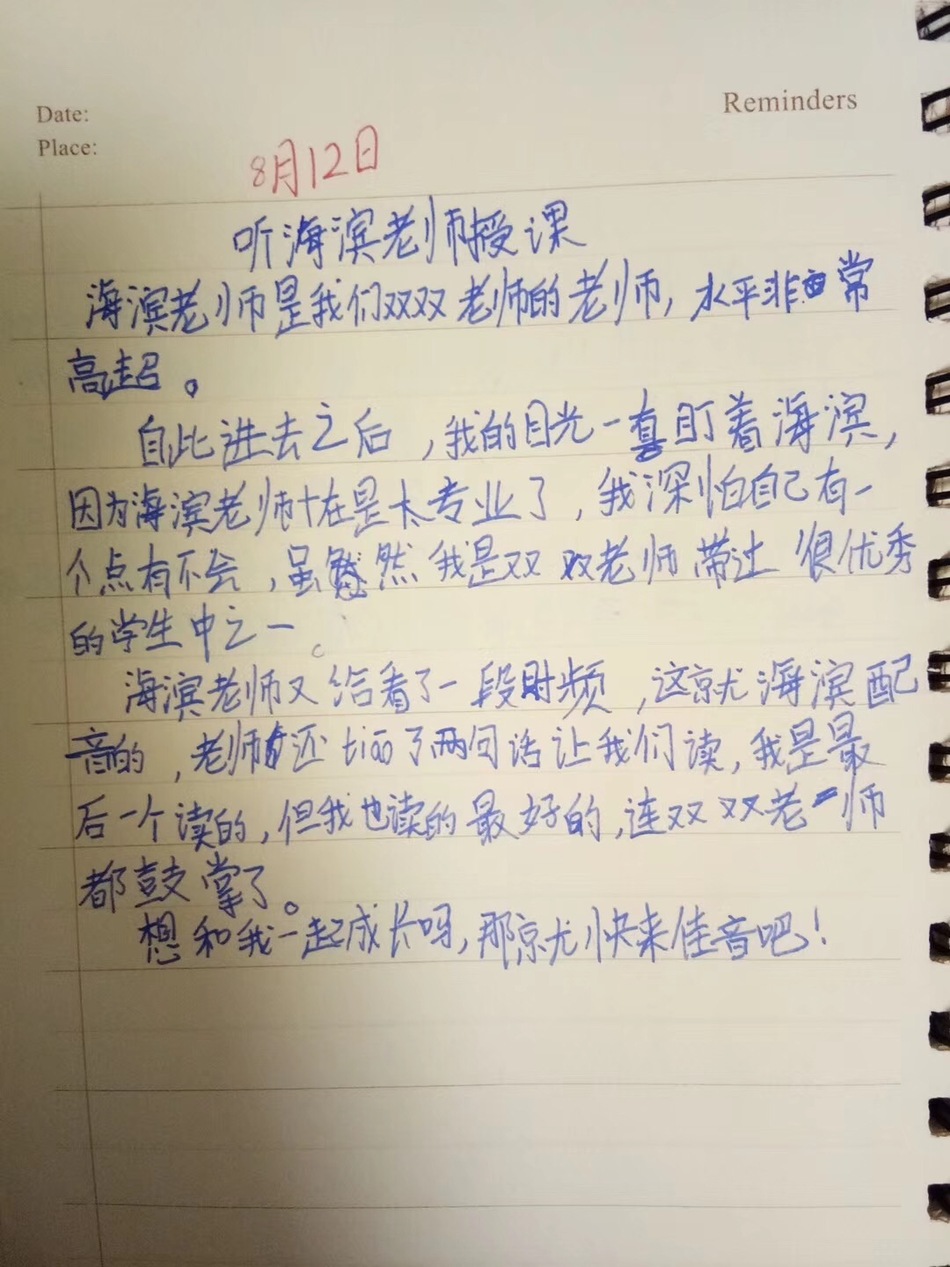 Reminders
Date:
Place:
8月12日
听海滨老师授课
海滨老师是我们双双老师的老师，水平非常
高超。
自此进去之后，我的目光一直盯着海滨，
因为海滨老师十在是太专业了，我深怕自己有一
个点有不会，虽然我是双双老师带过很优秀
的学生中之一。
海滨老师又给看了一段时频，这就尤海滨配
音的，老师还tiao了两句话让我们读，我是最
后一个读的，但我也读的最好的，连双双老师
都鼓掌了。
想和我一起成长吗，那就快来佳音吧！